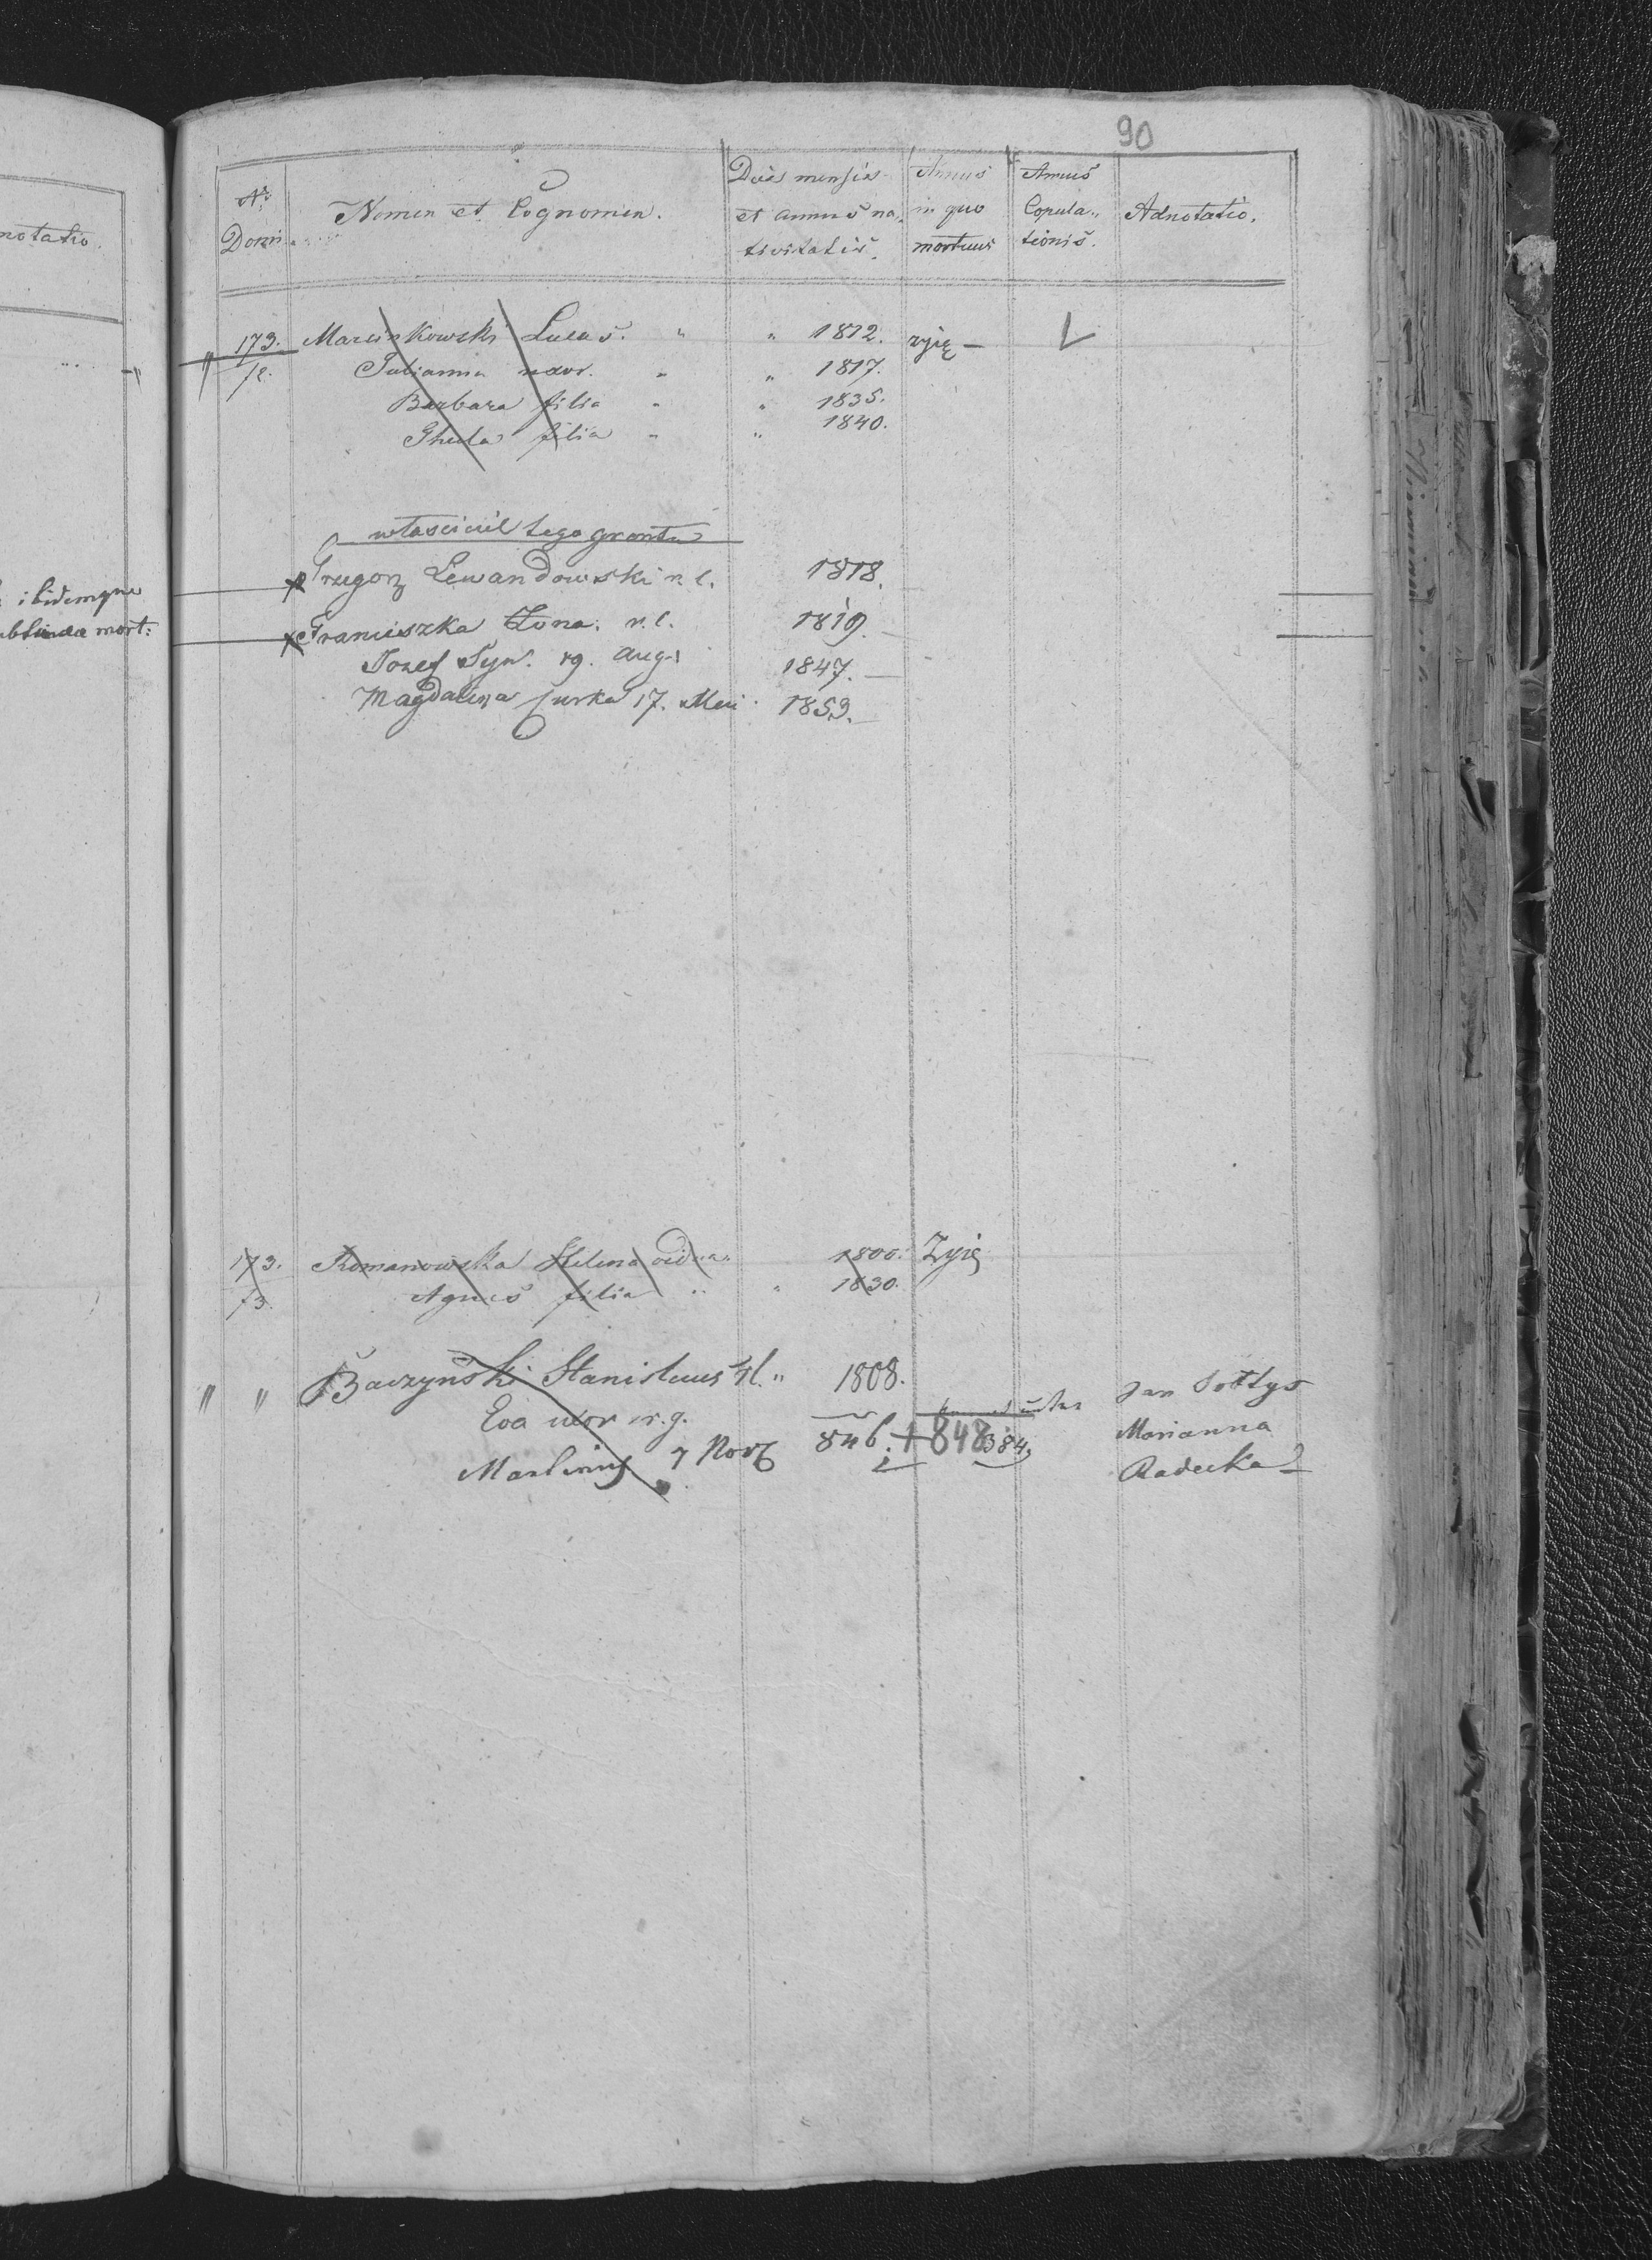 90
notatio.
Nr Domi
Nomen et Cognomen.
Dies mensis et annus na„ tivitatis.
Annus in quo mortuus
Annus Copula„ tionis.
Adnotatio.
173. Marcinkowski Lucas. " " 1812. zyię —
/2. Julianna uxor. " " 1817.
Barbara filia " " 1835.
Thecla filia " " 1840.
własciciel tego gruntu
Grzegorz Lewandowski r. l. 1818.
ibidemque
Franciszka Zona. r. l. 1819.
mort:
Jozef Syn. rg. Aug. 1847. —
Magdalena curka 17. Mai 1853. —
173. Romanowska Helena vidua " 1800. Zyię
/3. Agnes filia " " 1830.
" " Baczyński Stanislaus rl. " 1808.
Jan Sołtys
Eva uxor r. g.
Marianna
7 Nov 846. + 848
Radecka